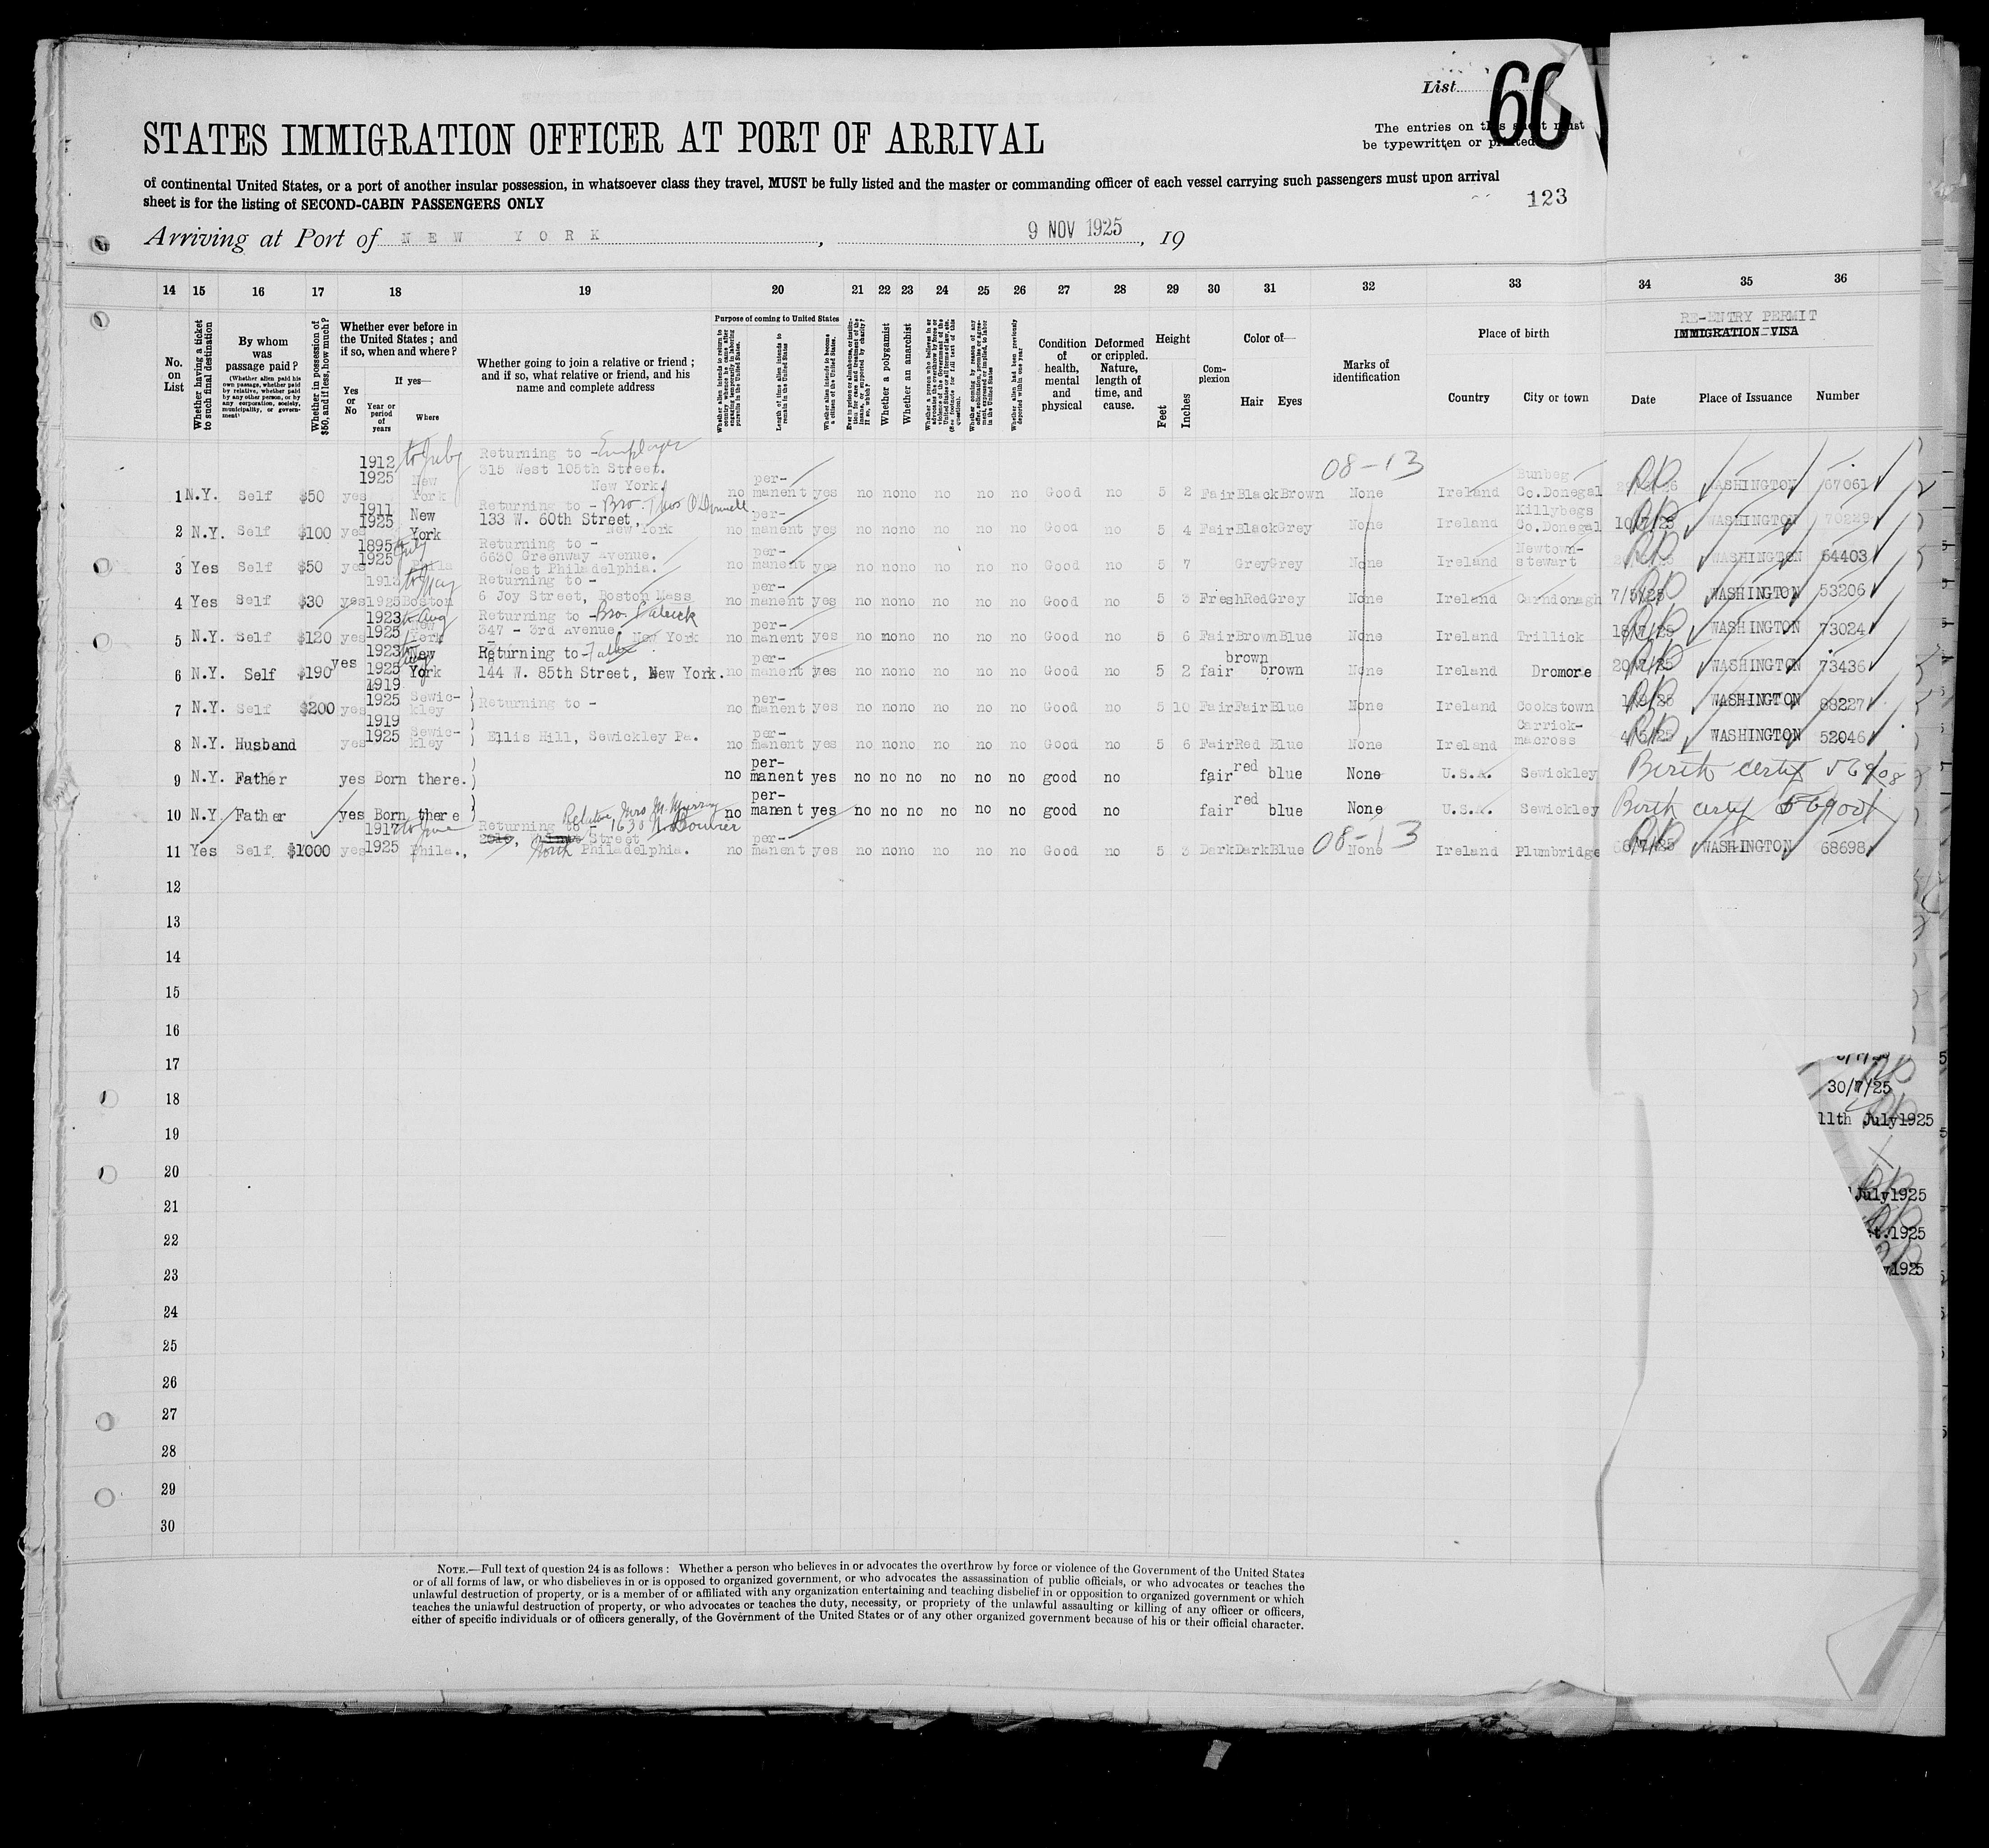 List 60
The entries on this sheet must
be typewritten or printed.
STATES IMMIGRATION OFFICER AT PORT OF ARRIVAL
of continental United States, or a port of another insular possession, in whatsoever class they travel, MUST be fully listed and the master or commanding officer of each vessel carrying such passengers must upon arrival
sheet is for the listing of SECOND-CABIN PASSENGERS ONLY
123
Arriving at Port of NEW YORK, 9 NOV 1925, 19
14 15 16 17 18 19 20 21 22 23 24 25 26 27 28 29 30 31 32 33 34 35 36
No. on List
Whether having a ticket to such final destination
By whom was passage paid?
(Whether alien paid his own passage, whether paid by relative, whether paid by any other person, or by any corporation, society, municipality, or government)
Whether in possession of $50, and if less, how much?
Whether ever before in the United States; and if so, when and where?
Yes or No
If yes—
Year or period of years
Where
Whether going to join a relative or friend; and if so, what relative or friend, and his name and complete address
Purpose of coming to United States
Length of time alien intends to remain in the United States
Whether alien intends to become a citizen of the United States.
Whether a polygamist
Whether an anarchist
Condition of health, mental and physical
Deformed or crippled. Nature, length of time, and cause.
Height
Feet
Inches
Complexion
Color of—
Hair Eyes
Marks of identification
Place of birth
Country City or town
RE-ENTRY PERMIT
IMMIGRATION VISA
Date Place of Issuance Number
08-13
1 N.Y. Self $50 yes 1912 1925 to July New York Returning to - Employer 315 West 105th Street. New York. no per-manent yes no no no no no no Good no 5 2 Fair Black Brown None Ireland Bunbeg Co.Donegal WASHINGTON 67061
2 N.Y. Self $100 yes 1911 1925 New York Returning to - Bro. Thos O'Donnell 133 W. 60th Street, New York no per-manent yes no no no no no no Good no 5 4 Fair Black Grey None Ireland Killybegs Co.Donegal WASHINGTON
3 Yes Self $50 yes 1895 1925 July Phila Returning to - 6630 Greenway Avenue. West Philadelphia. no per-manent yes no no no no no no Good no 5 7 Grey Grey None Ireland Newtown-stewart WASHINGTON 64403
4 Yes Self $30 yes 1925 Boston Returning to - 6 Joy Street, Boston Mass no per-manent yes no no no no no no Good no 5 3 Fresh Red Grey None Ireland Carndonagh 7/5/25 WASHINGTON 53206
5 N.Y. Self $120 yes 1923 1925 to Aug New York Returning to - Bro. 347 - 3rd Avenue, New York no per-manent yes no no no no no no Good no 5 6 Fair Brown Blue None Ireland Trillick WASHINGTON 73024
6 N.Y. Self $190 yes 1923 1925 New York Returning to - 144 W. 85th Street, New York. no per-manent yes no no no no no no Good no 5 2 fair brown brown None Ireland Dromore WASHINGTON 73436
7 N.Y. Self $200 yes 1919 1925 Sewic-kley Returning to - no per-manent yes no no no no no no Good no 5 10 Fair Fair Blue None Ireland Cookstown WASHINGTON 88227
8 N.Y. Husband yes 1919 1925 Sewic-kley Ellis Hill, Sewickley Pa. no per-manent yes no no no no no no Good no 5 6 Fair Red Blue None Ireland Carrick-macross 4/5/25 WASHINGTON 52046
9 N.Y. Father yes Born there. no per-manent yes no no no no no no good no fair red blue None U.S.A. Sewickley Birth certif
10 N.Y. Father yes Born there no per-manent yes no no no no no no good no fair red blue None U.S.A. Sewickley Birth certif
08-13
11 Yes Self $1000 yes 1925 to June Phila., Returning to - Relative Mrs M. Murray 1630 N. Bouvier Street North Philadelphia. no per-manent yes no no no no no no Good no 5 3 Dark Dark Blue None Ireland Plumbridge WASHINGTON 68698
12
13
14
15
16
17
18
19
20
21
22
23
24
25
26
27
28
29
30
30/7/25
11th July1925
July1925
t.1925
1925
NOTE.—Full text of question 24 is as follows: Whether a person who believes in or advocates the overthrow by force or violence of the Government of the United States
or of all forms of law, or who disbelieves in or is opposed to organized government, or who advocates the assassination of public officials, or who advocates or teaches the
unlawful destruction of property, or is a member of or affiliated with any organization entertaining and teaching disbelief in or opposition to organized government or which
teaches the unlawful destruction of property, or who advocates or teaches the duty, necessity, or propriety of the unlawful assaulting or killing of any officer or officers,
either of specific individuals or of officers generally, of the Government of the United States or of any other organized government because of his or their official character.